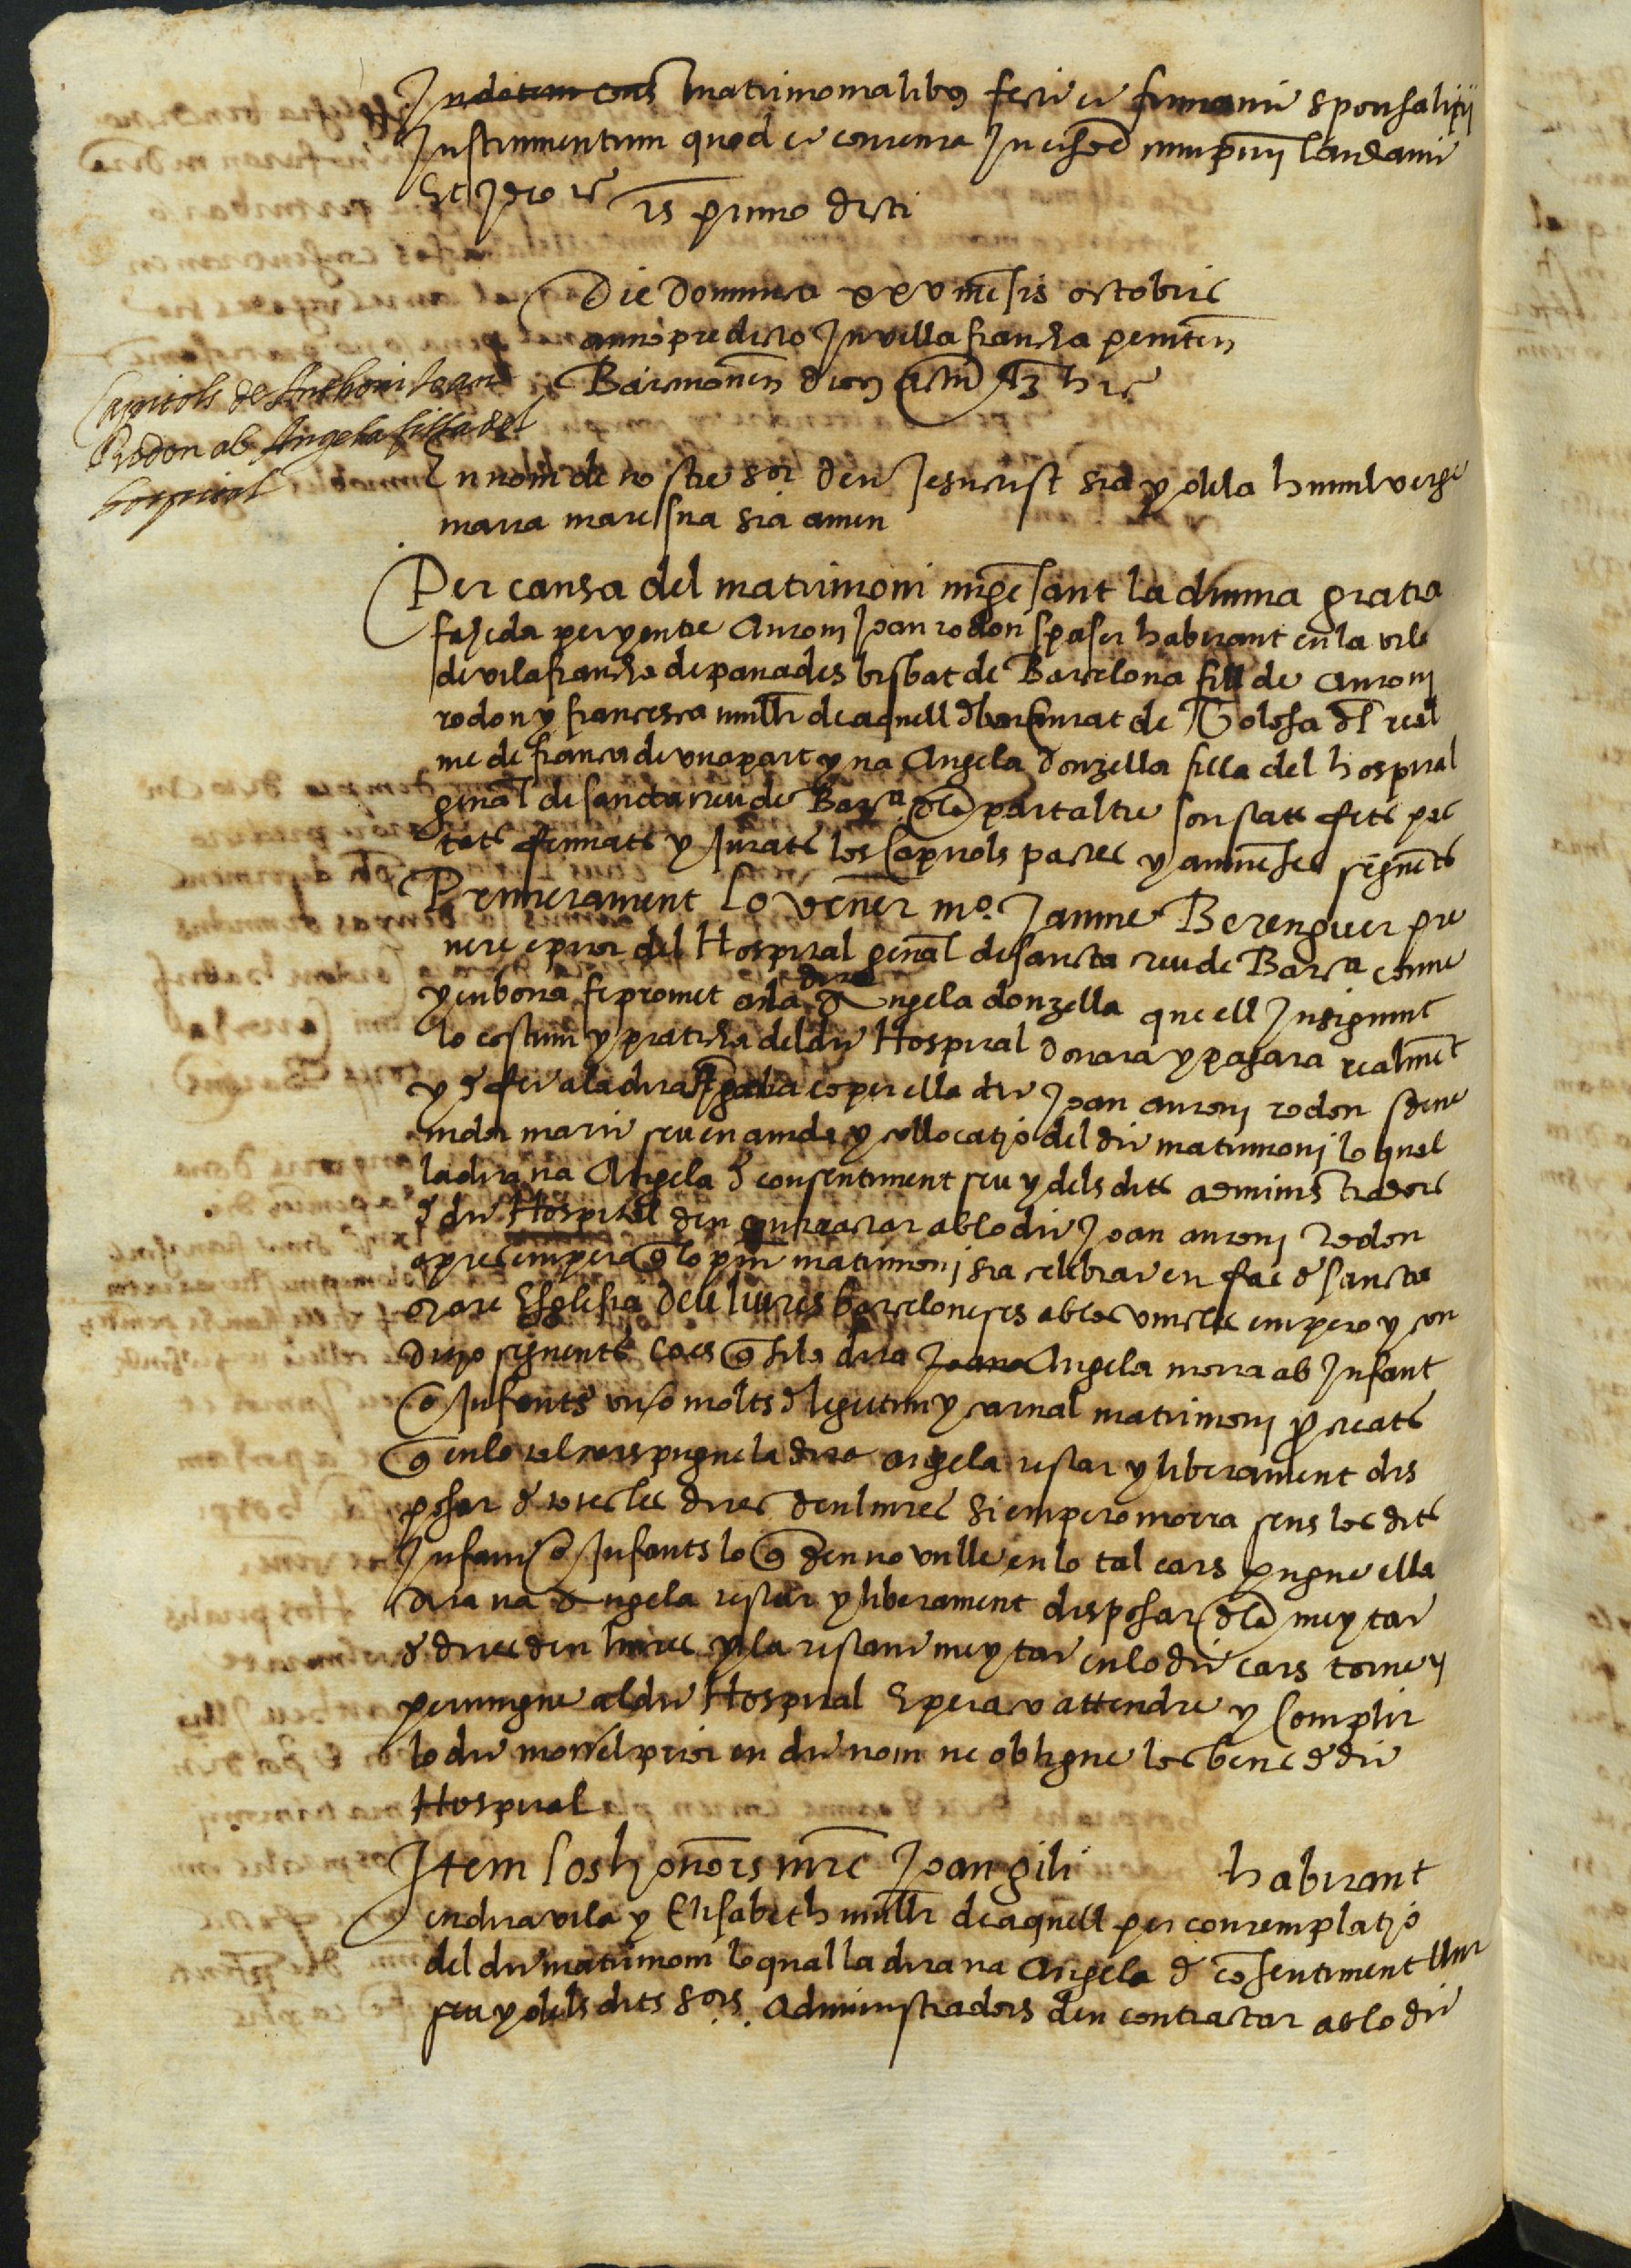 matrimonialibus fecit et firmavit sponsalitii
Instrumentum quod et convenit In eisdem laudavit
Et Ideo rē
Ts primo dicti
Die Dominica xxv mēsis octobris
anno predicto In villafrancha peniteñ
Barcinoneñ dioc
Capitols de Anthoni Joan
Rodon ab Angela filla del
hospital
En nom de nostre Sor deu Jesucrist sia y dela humil verge
maria mare sua sia amen
Per causa del matrimoni migēsant la divina gratia
fahedor per y entre Antoni Joan rodon spaser habitant en la vila
de vilafrancha de panades bisbat de Barcelona fill de Antoni
rodon y francesca mullr de aquell de Tolosa dl real
me de franca de una part y na Angela donzella filla del hospital
gēnal de sancta creu de Barna dla part altre son stats fets pac
tats fermats y Jurats los Capitols pactes y avinēses seguēts
Primerament Lo vēner mo. Jaume Berenguer pre
vere e prior del Hospital gēnal de sancta creu de Barna come
y en bona fe promet a la dita Angela donzella que ell Insiguint
lo costum y praticha del dit Hospital donara y pagara realmēt
y d fet a la dita Angela e o per ella al dit Joan antoni rodon sdeve
nidor marit seu en aiuda y collocatio del dit matrimoni lo qual
la dita na Angela d consentiment seu y dels dits administradors
d dit Hospital deu contractar ab lo dit Joan antoni Rodon
apres empero q lo pnt matrimoni sia celebrat en fac d sancta
mare Esglesia deu liures barceloneses ab los vincles empero y con
ditio seguents Coes q si la dita Joana Angela morra ab Infant
o Infants un o molts d legittim y carnal matrimoni procreats
q en lo tal cars pugue la dita angela testar y liberament dis
posar d totes les dites deu liures Si empero morra sens los dits
Infant o Infants lo q deu no vulle en lo tal cars pugue ella
dita na Angela testar y liberament disposar dla meytat
d dites deu liures y la restant meytat en lo dit cars torne y
pervingue al dit Hospital E per aco attendre y Complir
lo dit mossēl prior en dit nom ne obligue los bens d dit
Hospital
Item los honors mre Joan gili habitant
en dita vila y Elisabeth mullr de aquell per contemplatio
del dit matrimoni lo qual la dita na Angela d cōsentiment llur
seu y dels dits Sors. Administradors deu contractar ab lo dit